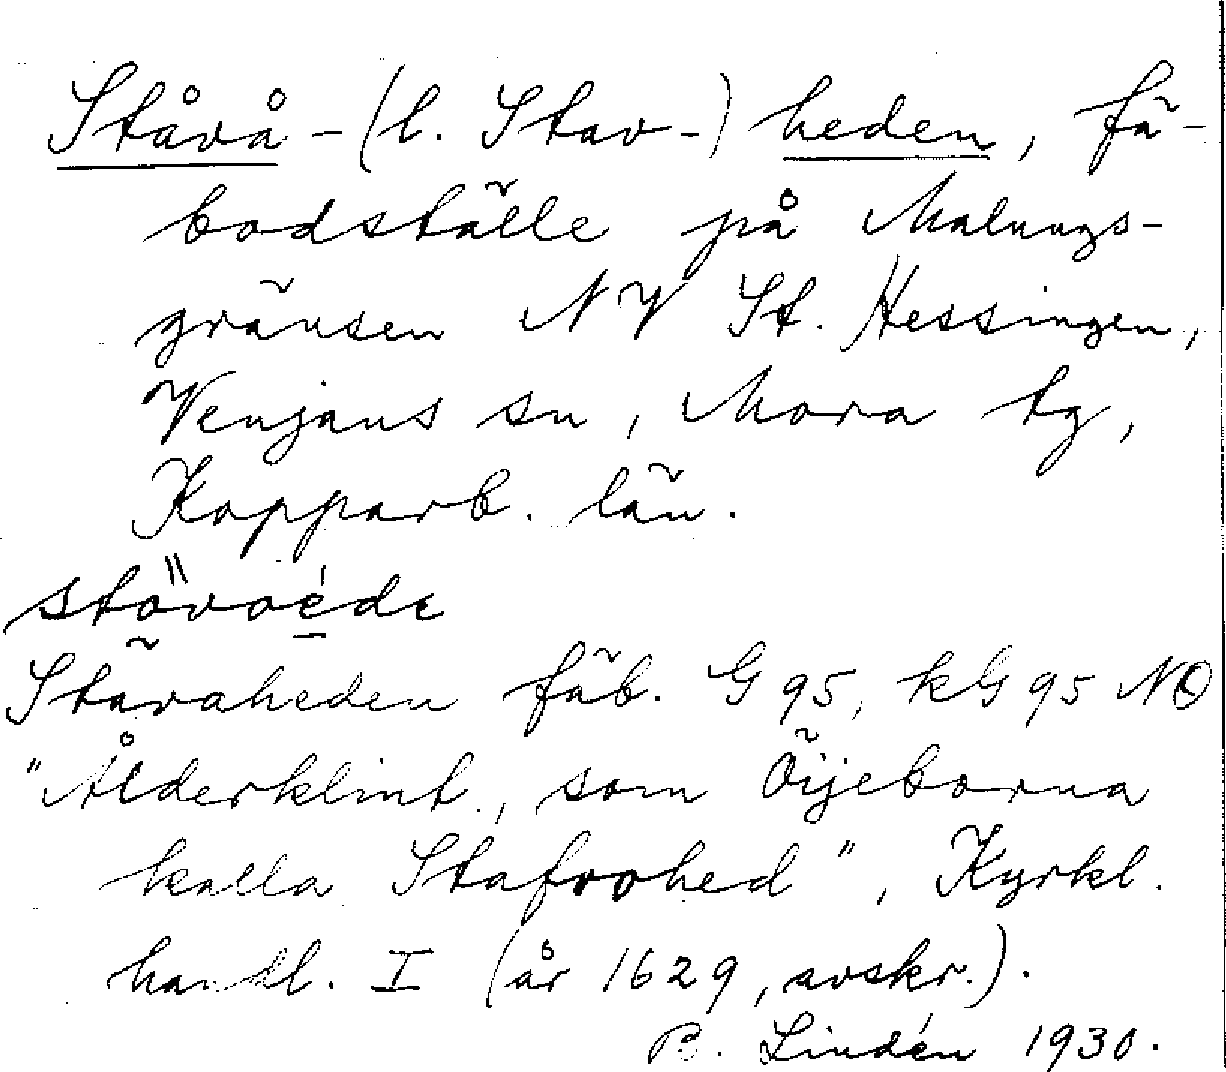 Ståvå-(l. Stav-) heden, fä-
bodställe på Malungs-
gränsen NV St. Hessingen,
Venjans sn, Mora tg,
Kopparb. län.
stövoéde
Stävaheden fäb. G 95, kG 95 NO
"Ålderklint, som Öijeborna
kalla Stafvohed", Kyrkl.
handl. I (år 1629, avskr.).
B. Lindén 1930.